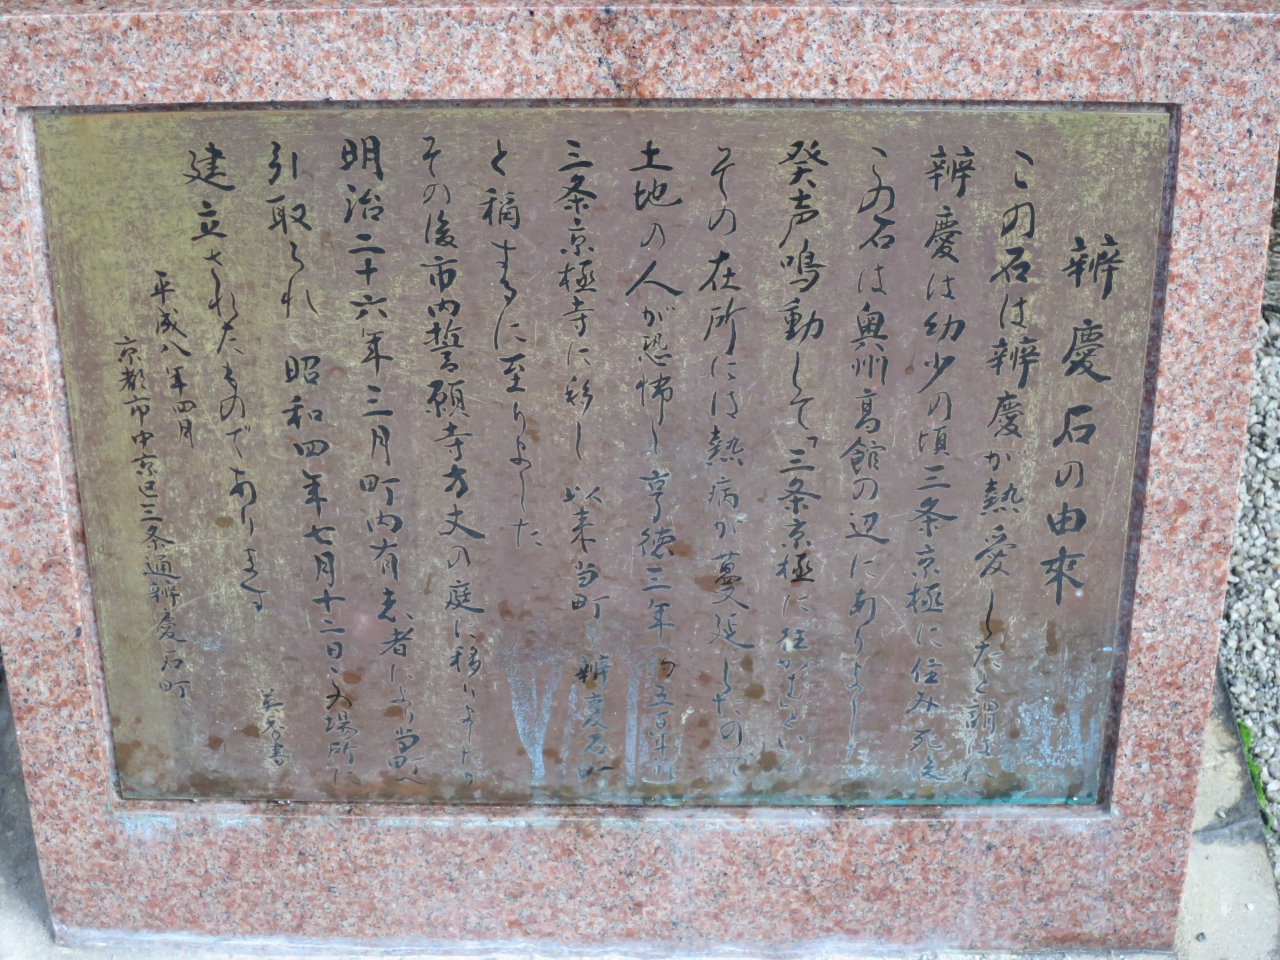 辨慶石の由來
この石は辨慶が熱愛したと謂はれ
辨慶は幼少の頃三条京極に住み死後
この石は奥州高館の辺にありまし
発声鳴動して「三条京極に往かむ」とい
その在所には熱病が蔓延したので
土地の人が恐怖し享徳三年(約五百年前
三条京極寺に移し 以来当町を辨慶石町
と稱するに至りました
その後市内誓願寺方丈の庭に移りました
明治二十六年三月町内有志者により当町へ
引取られ 昭和四年七月十二日この場所に
建立されたものであります
平成八年四月
京都市中京区三条通辨慶石町